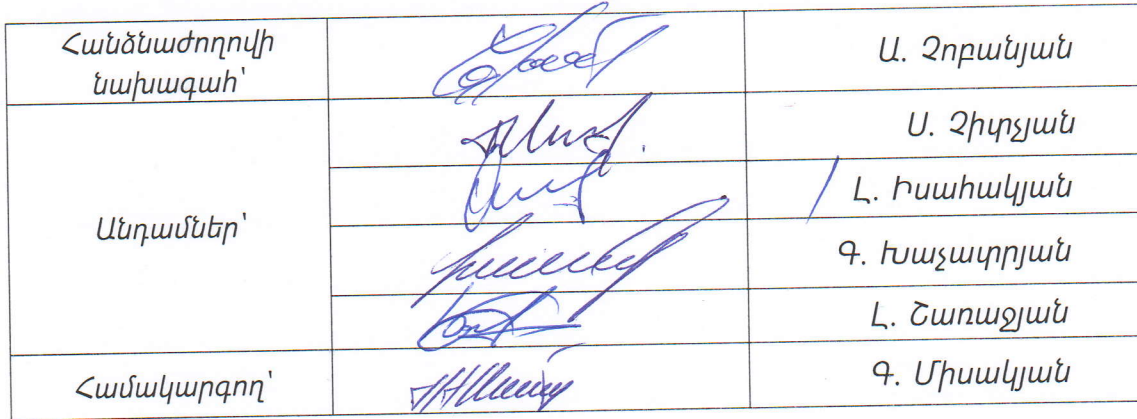 Հանձնաժողովի
նախագահ՝
Ա. Չոբանյան
Անդամներ՝
Ս. Չիտչյան
Լ. Իսահակյան
Գ. Խաչատրյան
Լ. Շառաջյան
Համակարգող՝
Գ. Միսակյան